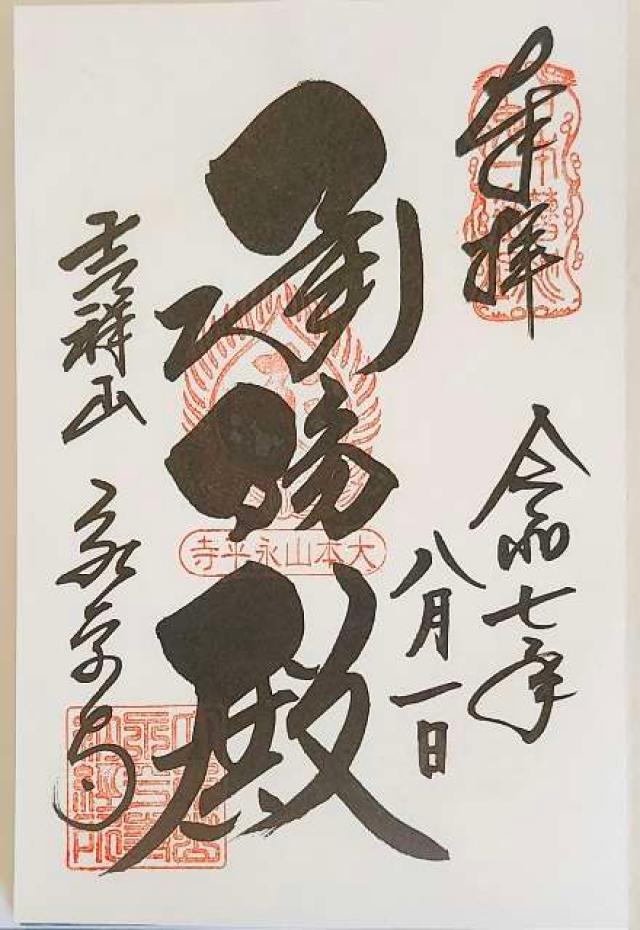 奉拝
令和七年
八月一日
承陽殿
大本山永平寺
吉祥山
永平寺